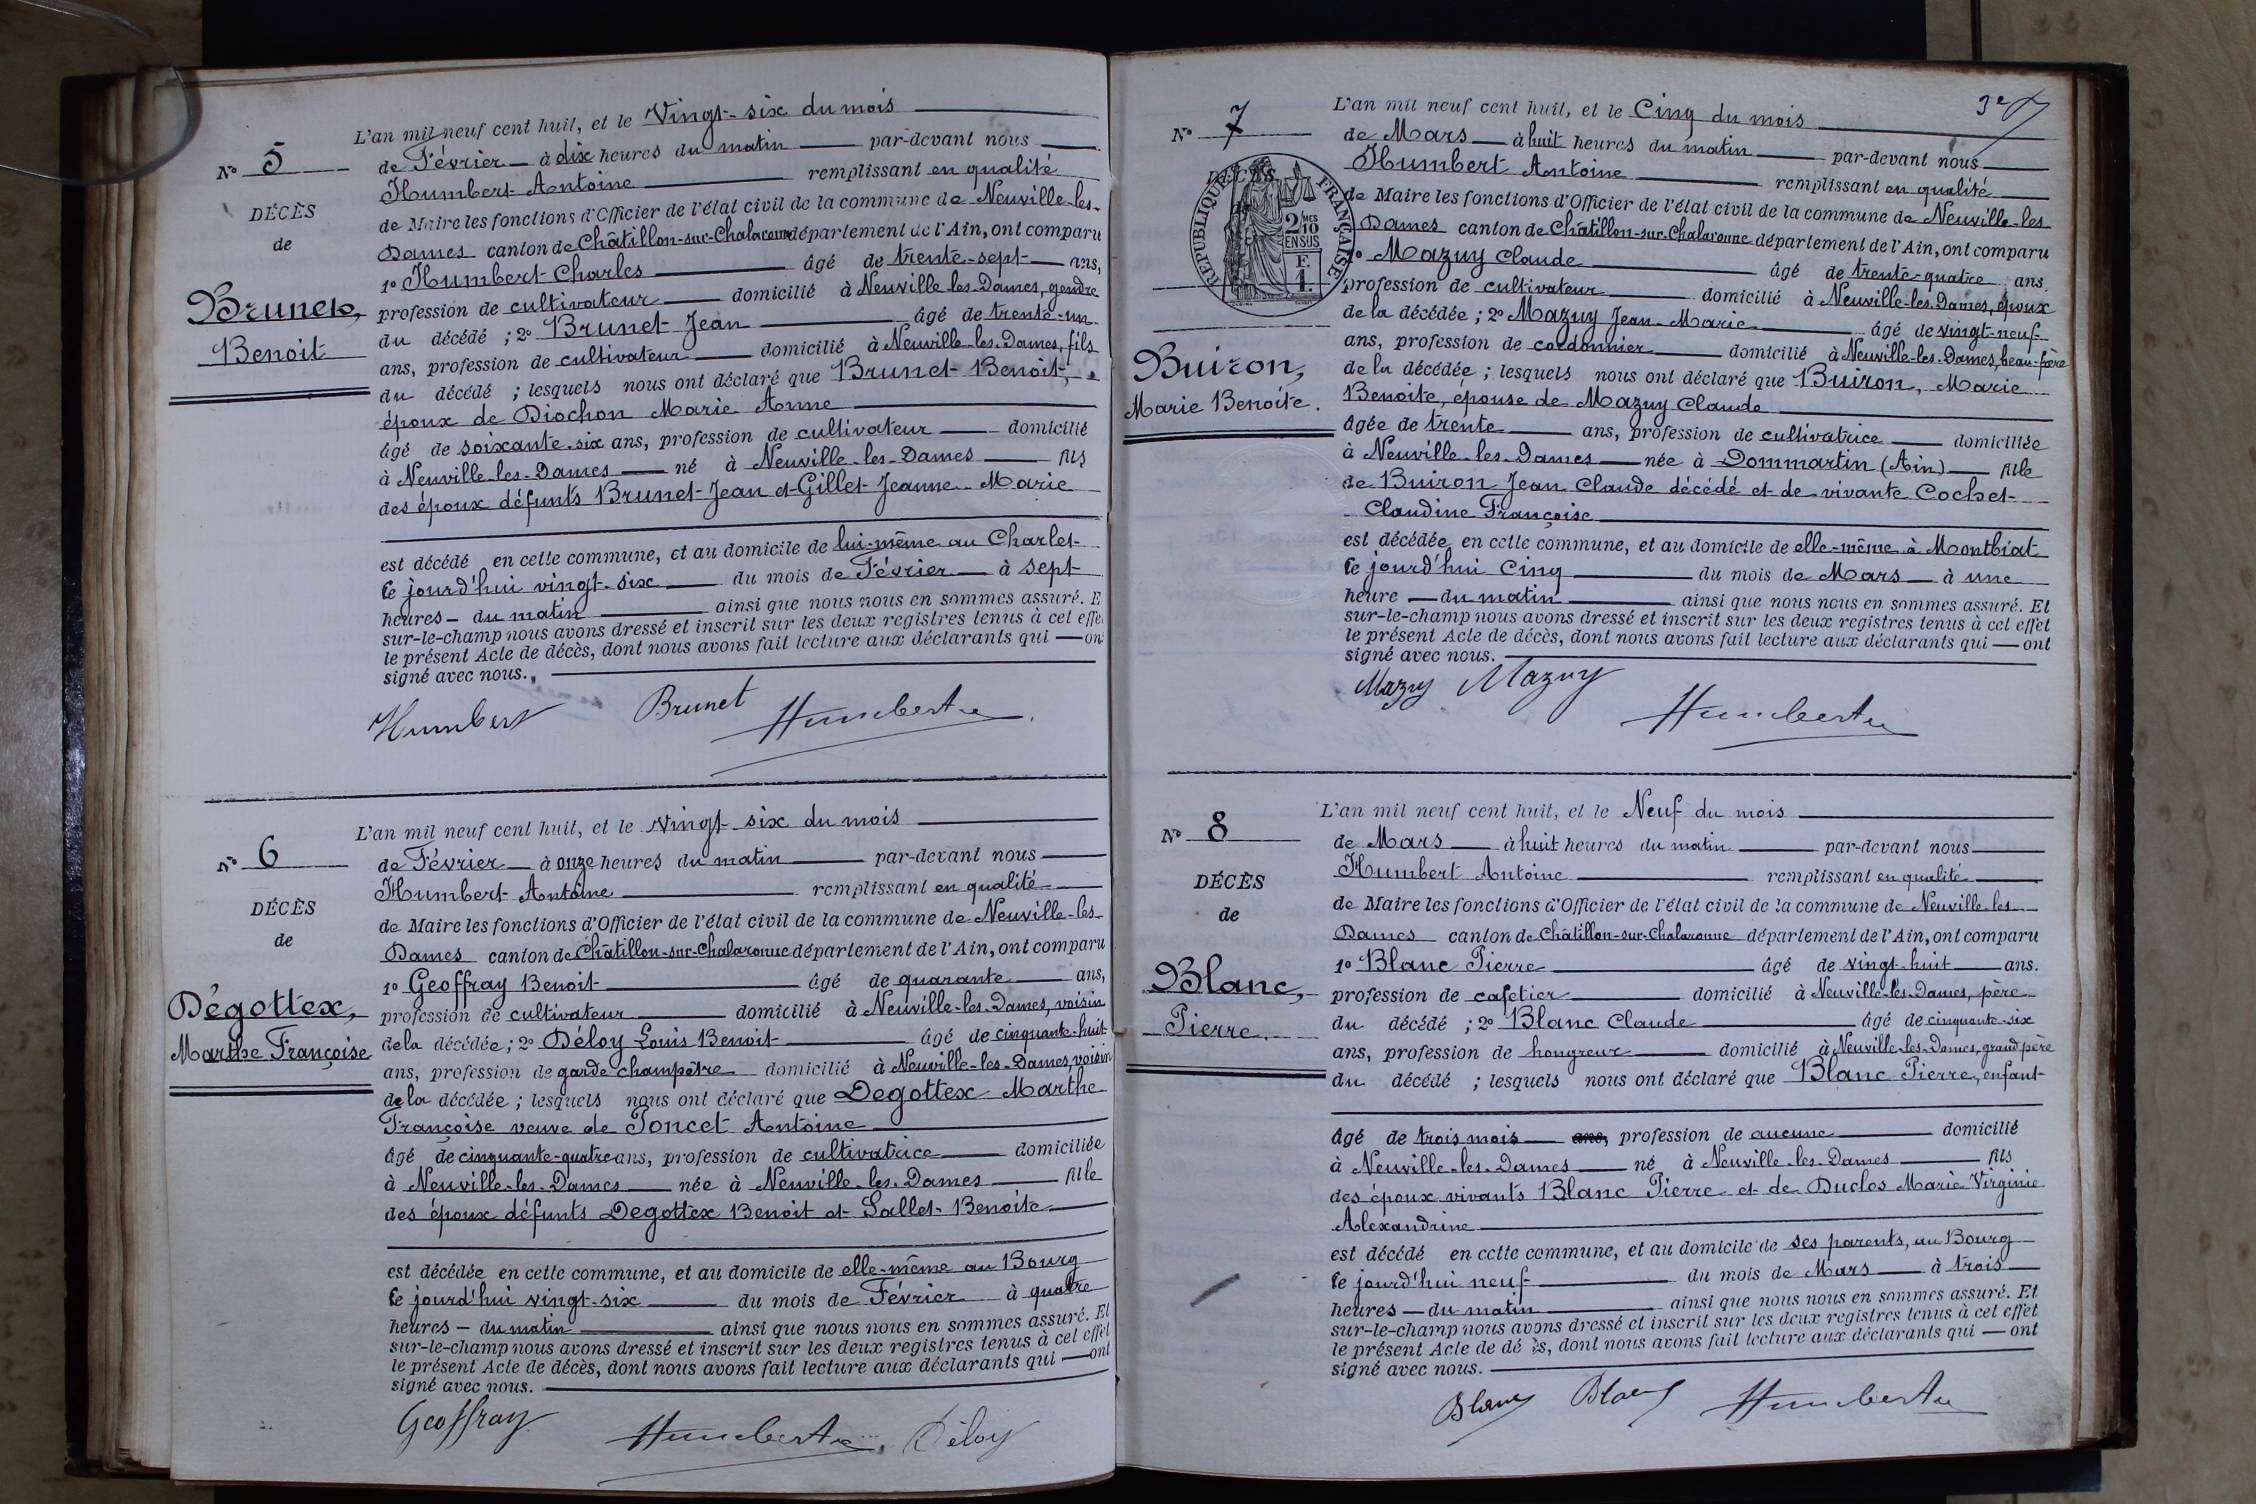 N° 5
DÉCÈS
de
Brunet,
Benoit
L'an mil neuf cent huit, et le Vingt-six du mois
de Février à dix heures du matin par-devant nous
Humbert Antoine remplissant en qualité
de Maire les fonctions d'Officier de l'état civil de la commune de Neuville-les-
Dames canton de Châtillon-sur-Chalaronne département de l'Ain, ont comparu
1° Humbert Charles âgé de trente-sept ans,
profession de cultivateur domicilié à Neuville-les-Dames, gendre
du décédé ; 2° Brunet Jean âgé de trente-un
ans, profession de cultivateur domicilié à Neuville-les-Dames, fils
du décédé ; lesquels nous ont déclaré que Brunet Benoit,
époux de Diochon Marie Anne
âgé de soixante-six ans, profession de cultivateur domicilié
à Neuville-les-Dames né à Neuville-les-Dames fils
des époux défunts Brunet Jean et Gillet Jeanne-Marie
est décédé en cette commune, et au domicile de lui-même au Charlet
ce jourd'hui vingt-six du mois de Février à sept
heures du matin ainsi que nous nous en sommes assuré. E
sur-le-champ nous avons dressé et inscrit sur les deux registres tenus à cet effe
le présent Acte de décès, dont nous avons fait lecture aux déclarants qui — on
signé avec nous.
Humbert Brunet Humbert
N° 6
DÉCÈS
de
Dégottex,
Marthe Françoise
L'an mil neuf cent huit, et le Vingt-six du mois
de Février à onze heures du matin par-devant nous
Humbert Antoine remplissant en qualité
de Maire les fonctions d'Officier de l'état civil de la commune de Neuville-les
Dames canton de Châtillon-sur-Chalaronne département de l'Ain, ont comparu
1° Geoffray Benoit âgé de quarante ans,
profession de cultivateur domicilié à Neuville-les-Dames, voisin
de la décédée ; 2° Déloy Louis Benoit âgé de cinquante-huit
ans, profession de garde champêtre domicilié à Neuville-les-Dames, voisin
de la décédée ; lesquels nous ont déclaré que Degottex Marthe
Françoise veuve de Poncet Antoine
âgé de cinquante-quatre ans, profession de cultivatrice domiciliée
à Neuville-les-Dames née à Neuville-les-Dames fille
des époux défunts Degottex Benoit et Sallet Benoite
est décédée en cette commune, et au domicile de elle-même au Bourg
ce jourd'hui vingt-six du mois de Février à quatre
heures — du matin ainsi que nous nous en sommes assuré. Et
sur-le-champ nous avons dressé et inscrit sur les deux registres tenus à cet effet
le présent Acte de décès, dont nous avons fait lecture aux déclarants qui — ont
signé avec nous.
Geoffray Humbert Déloy
3e
N° 7
DÉCÈS
RÉPUBLIQUE FRANÇAISE
2 MES
10
EN SUS
F.
1.
Buiron,
Marie Benoite.
L'an mil neuf cent huit, et le Cinq du mois
de Mars à huit heures du matin par-devant nous
Humbert Antoine remplissant en qualité
de Maire les fonctions d'Officier de l'état civil de la commune de Neuville-les
Dames canton de Châtillon-sur-Chalaronne département de l'Ain, ont comparu
1° Mazuy Claude âgé de trente-quatre ans.
profession de cultivateur domicilié à Neuville-les-Dames, époux
de la décédée ; 2° Mazuy Jean-Marie âgé de vingt-neuf
ans, profession de cordonnier domicilié à Neuville-les-Dames, beau-frère
de la décédée ; lesquels nous ont déclaré que Buiron, Marie
Benoite, épouse de Mazuy Claude
âgée de trente ans, profession de cultivatrice domiciliée
à Neuville-les-Dames née à Dommartin (Ain) fille
de Buiron Jean Claude décédé et de vivante Cochet
Claudine Françoise
est décédée en cette commune, et au domicile de elle-même à Montbiat
ce jourd'hui Cinq du mois de Mars à une
heure — du matin ainsi que nous nous en sommes assuré. Et
sur-le-champ nous avons dressé et inscrit sur les deux registres tenus à cet effet
le présent Acte de décès, dont nous avons fait lecture aux déclarants qui — ont
signé avec nous.
Mazuy Mazuy Humbert
N° 8
DÉCÈS
de
Blanc,
Pierre.
L'an mil neuf cent huit, et le Neuf du mois
de Mars à huit heures du matin par-devant nous
Humbert Antoine remplissant en qualité
de Maire les fonctions d'Officier de l'état civil de la commune de Neuville-les
Dames canton de Châtillon-sur-Chalaronne département de l'Ain, ont comparu
1° Blanc Pierre âgé de vingt-huit ans.
profession de cafetier domicilié à Neuville-les-Dames, père
du décédé ; 2° Blanc Claude âgé de cinquante-six
ans, profession de hongreur domicilié à Neuville-les-Dames, grand père
du décédé ; lesquels nous ont déclaré que Blanc Pierre, enfant
âgé de trois mois ans, profession de aucune domicilié
à Neuville-les-Dames né à Neuville-les-Dames fils
des époux vivants Blanc Pierre et de Duclos Marie Virginie
Alexandrine
est décédé en cette commune, et au domicile de ses parents, au Bourg
ce jourd'hui neuf du mois de Mars à trois
heures — du matin ainsi que nous nous en sommes assuré. Et
sur-le-champ nous avons dressé et inscrit sur les deux registres tenus à cet effet
le présent Acte de dé ès, dont nous avons fait lecture aux déclarants qui — ont
signé avec nous.
Blanc Blanc Humbert